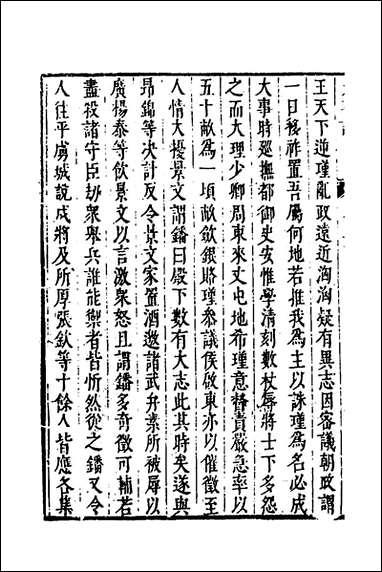 王天下逆瑾亂政遠近洶洶疑有異志因審議朝政謂
一日移祚置吾屬何地若推我爲主以誅瑾爲名必成
大事時廵撫都御史安惟學清刻數杖辱將士下多怨
之而大理少卿周東來丈屯地希瑾意督責嚴急率以
五十畝爲一頃畝歛銀賂瑾叅議侯啟東亦以催徵至
人情大擾景文謂鐇曰殿下數有大志此其時矣遂與
昻錦等决計反令景文家置酒邀諸武弁素所被辱以
廣楊泰等飲景文以言激衆怒且謂鐇多奇徵可輔若
盡殺諸守臣劫衆舉兵誰能禦者皆忻然從之鐇又令
人往平虜城說戍將及所厚張欽等十餘人皆應各集